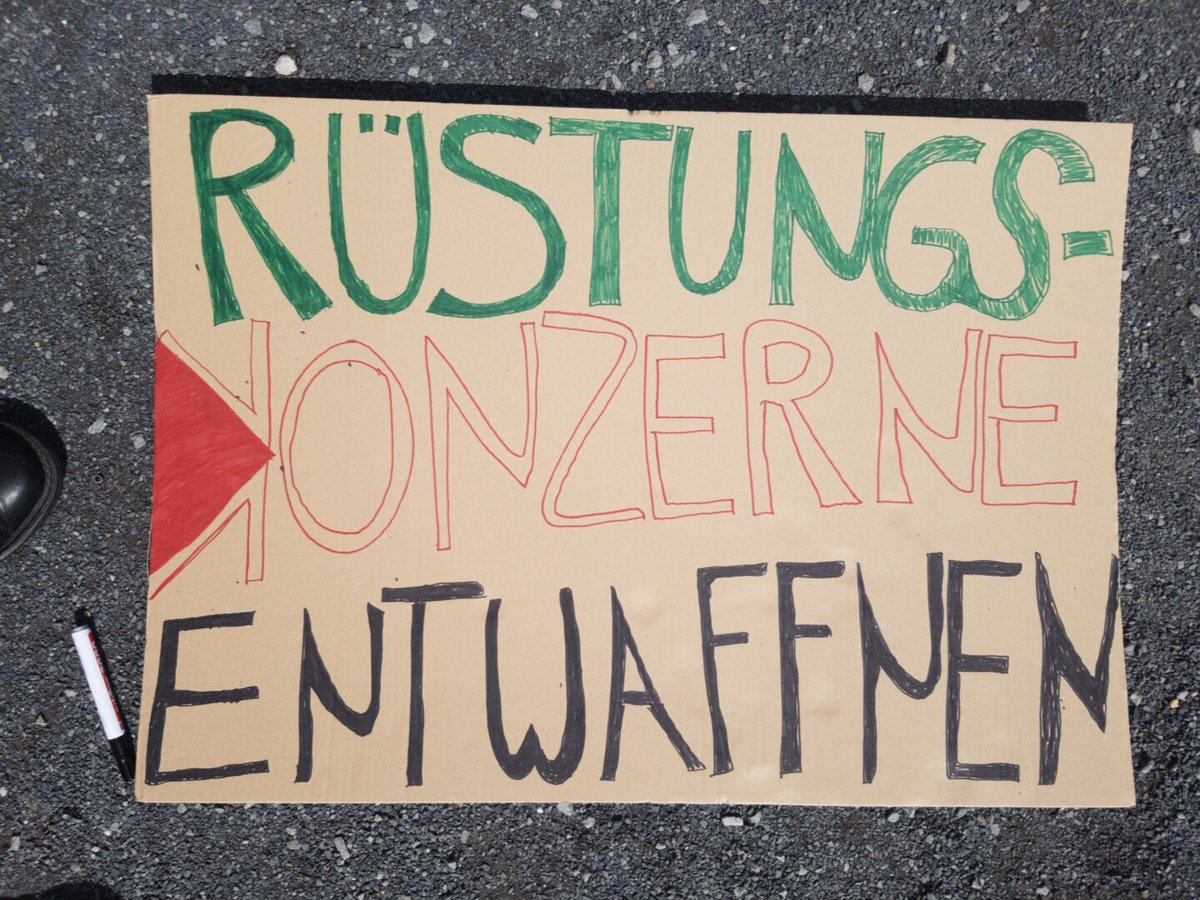 RÜSTUNGS-
KONZERNE
ENTWAFFNEN